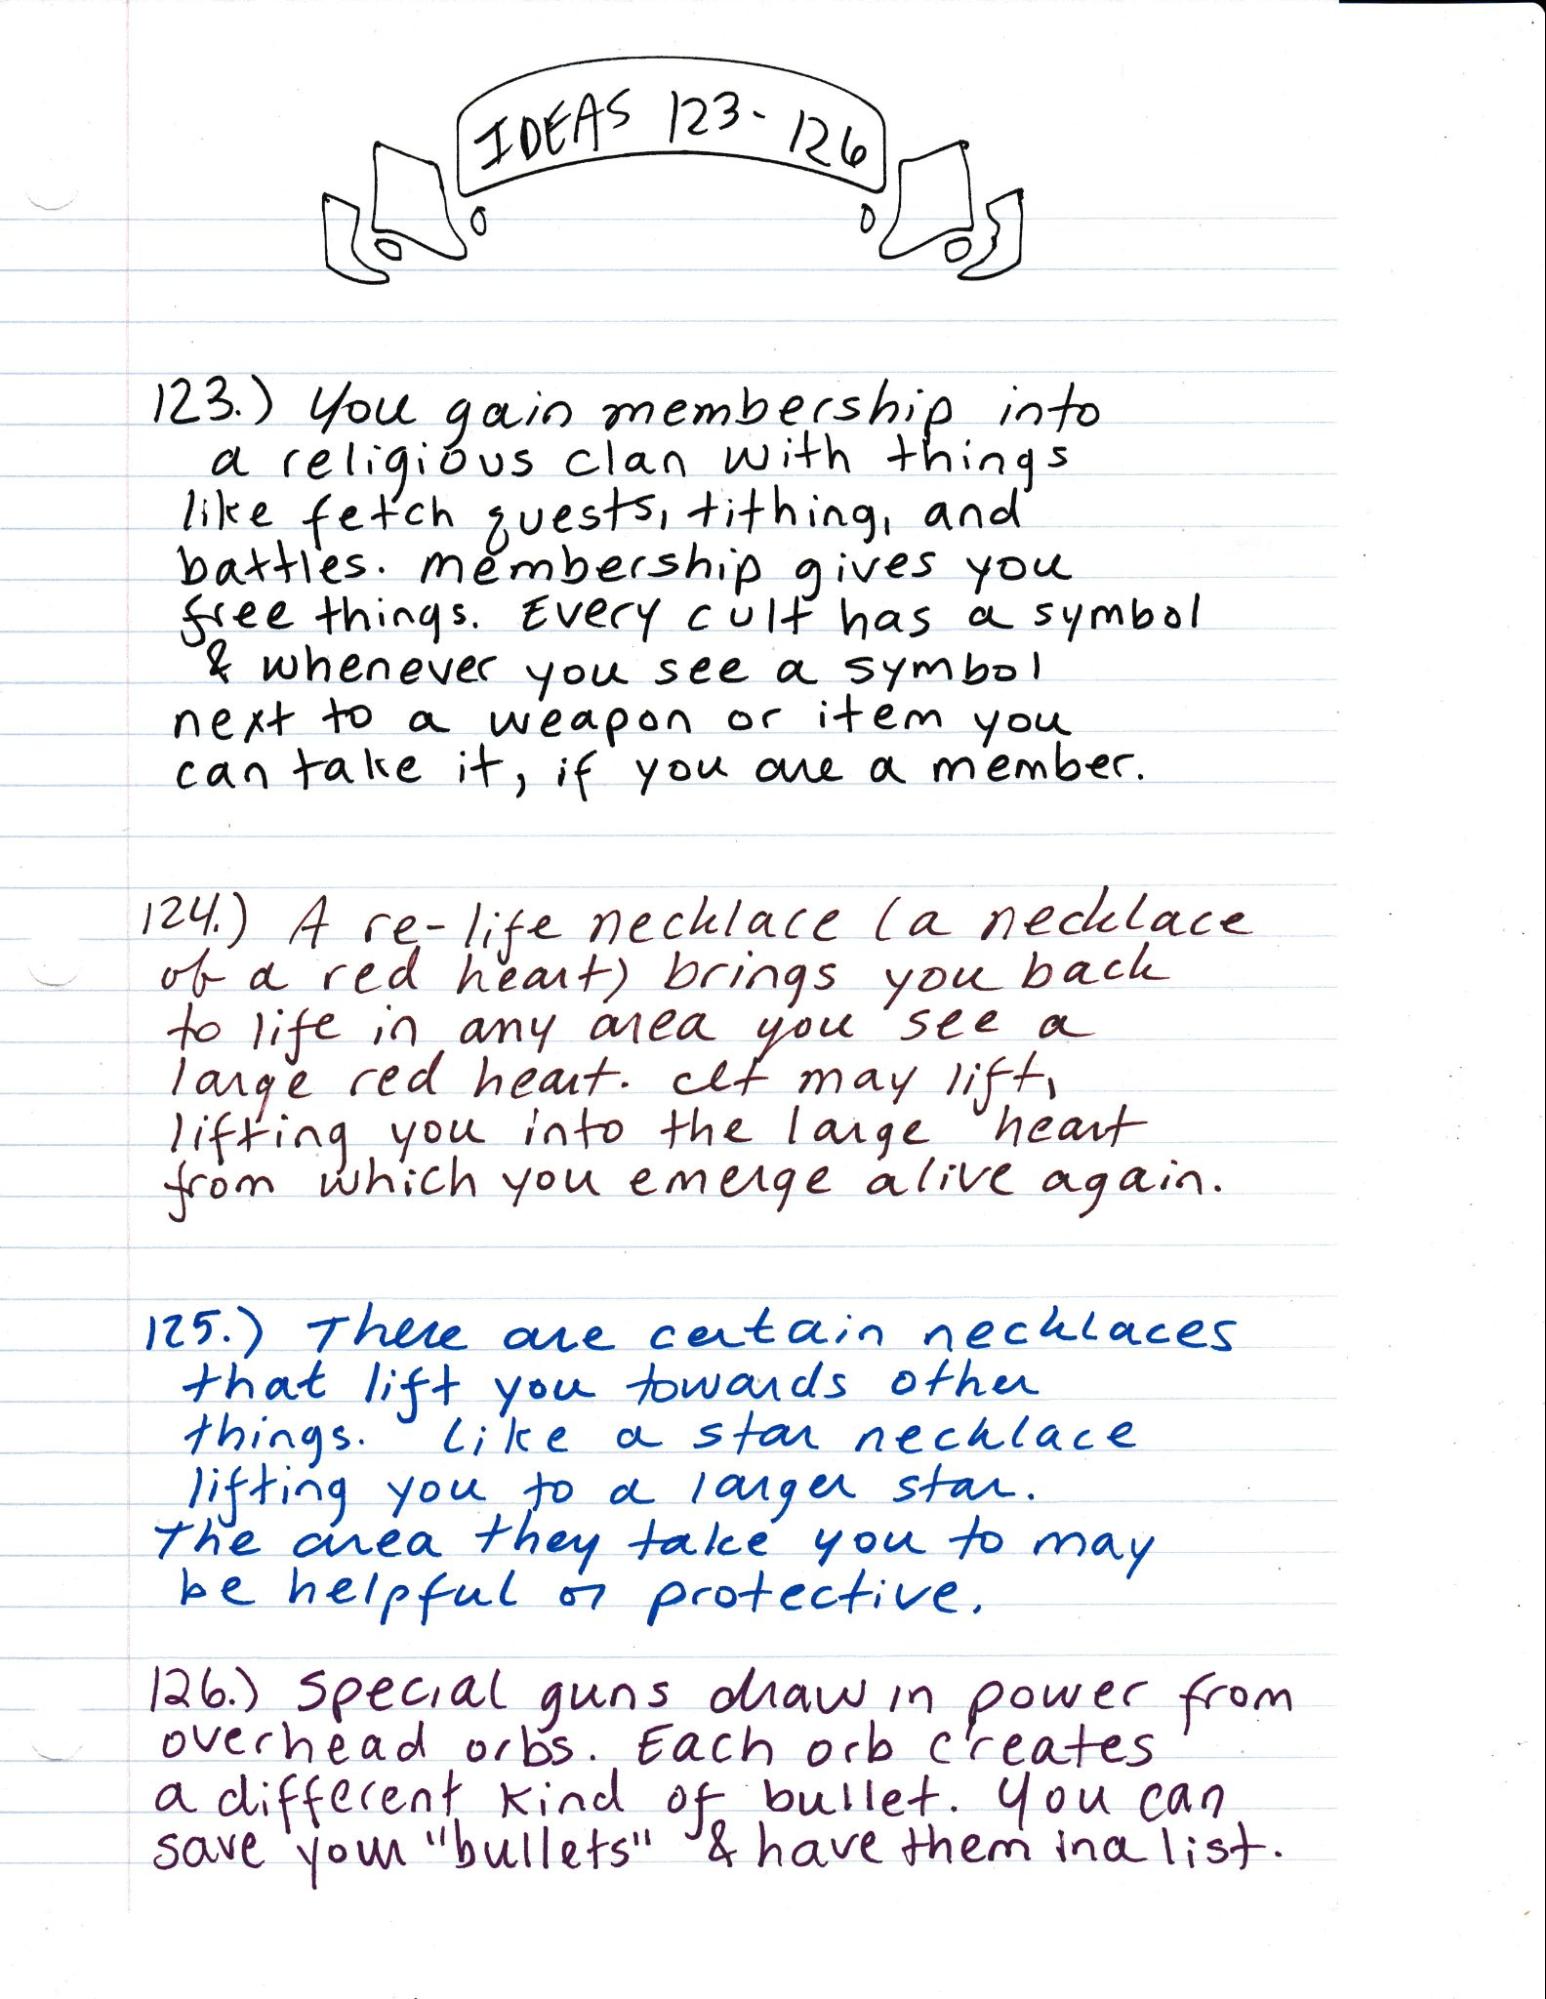 IDEAS 123-126
123.) You gain membership into
a religious clan with things
like fetch quests, tithing, and
battles. membership gives you
free things. Every cult has a symbol
& whenever you see a symbol
next to a weapon or item you
can take it, if you are a member.
124.) A re-life necklace (a necklace
of a red heart) brings you back
to life in any area you see a
large red heart. It may lift,
lifting you into the large heart
from which you emerge alive again.
125.) There are certain necklaces
that lift you towards other
things. Like a star necklace
lifting you to a larger star.
The area they take you to may
be helpful or protective.
126.) Special guns draw in power from
overhead orbs. Each orb creates
a different kind of bullet. You can
save your "bullets" & have them in a list.